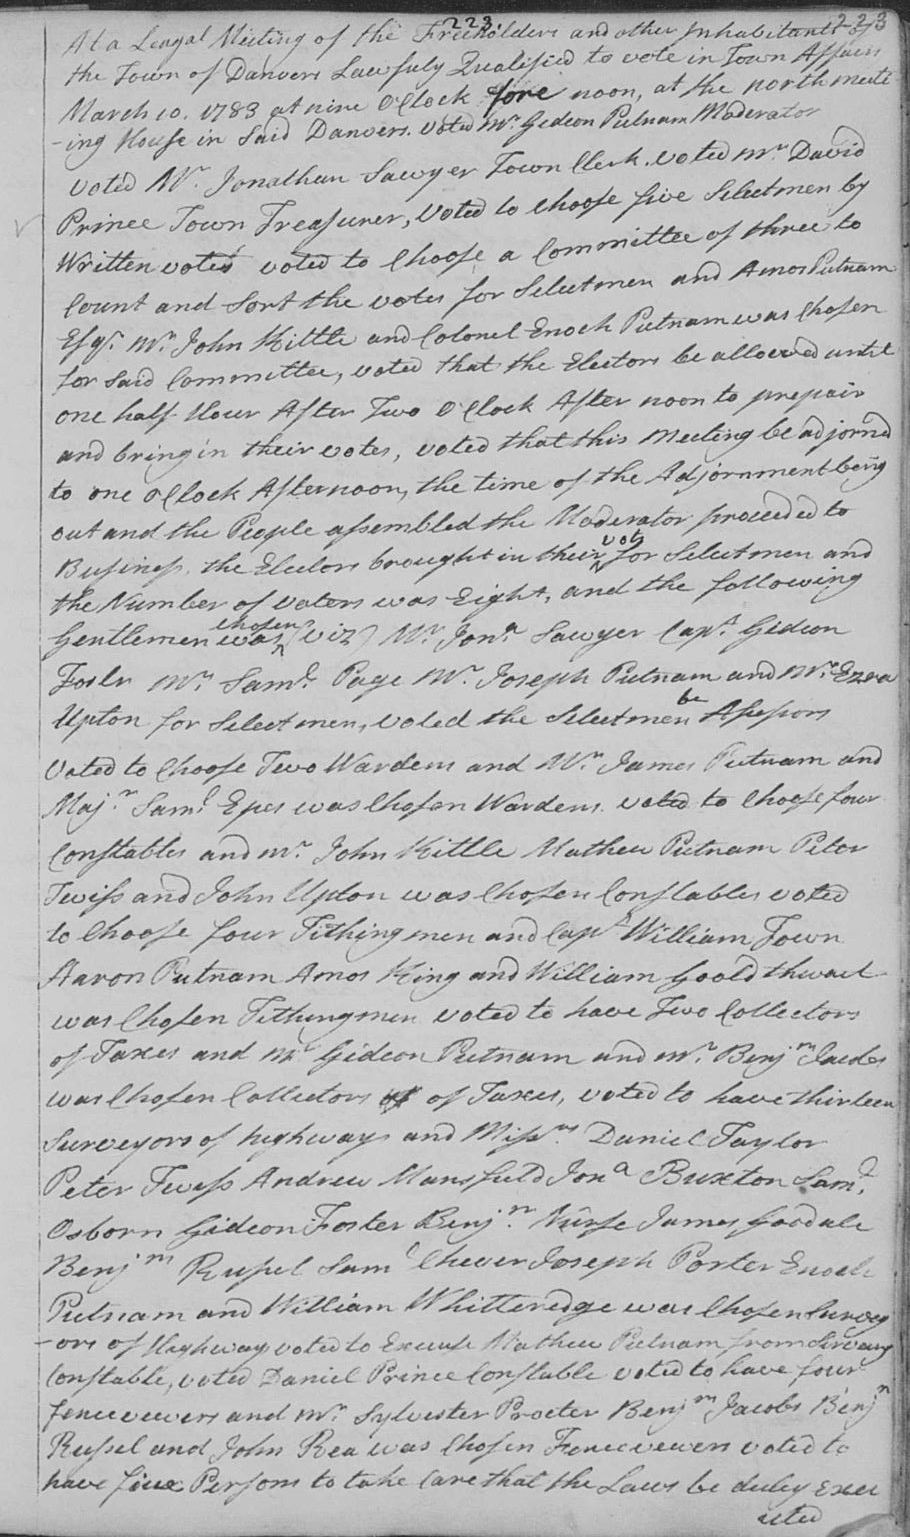 223. 223
At a Leagal Meeting of the Freeholders and other Inhabitants of
the Town of Danvers Lawfuly Qualified to vote in Town Affairs
March 10. 1783 at nine O'Clock fore noon, at the north meet
-ing House in Said Danvers. voted Mr. Gideon Putnam Moderator
voted Mr. Jonathan Sawyer Town Clerk. voted Mr. David
Prince Town Treasurer, voted to choose five Selectmen by
Written votes voted to Choose a Committee of three to
Count and Sort the votes for Selectmen and Amos Putnam
Esqr. Mr. John Kittle and Colonel Enoch Putnam was Chosen
for Said Committee, voted that the Electors be allowed until
one half Hour After Two O'Clock After noon to prepair
and bring in their votes, voted that this Meeting be adjornd
to one O'Clock Afternoon, the time of the Adjornment being
out and the People assembled the Moderator proceeded to
Business, the Electors brought in their vots for Selectmen and
the Number of voters was Eight, and the following
Gentlemen was chosen (viz) Mr. Jona. Sawyer Capt. Gideon
Foster Mr. Saml. Page Mr. Joseph Putnam and Mr. Ezra
Upton for Selectmen, voted the Selectmen be Assessors
Voted to Choose Two Wardens and Mr. James Putnam and
Majr. Saml Epes was Chosen Wardens. voted to Choose four
Constables and Mr. John Kittle Mathew Putnam Peter
Twiss and John Upton was Chosen Constables voted
to Choose four Tithingmen and Capt William Town
Aaron Putnam Amos King and William Goold thwait
was Chosen Tithingmen voted to have Two Collectors
of Taxes and Mr. Gideon Putnam and Mr. Benjm Jacobs
was Chosen Collectors of Taxes, voted to have thirteen
Surveyors of highways and Missrs. Daniel Taylor
Peter Twiss Andrew Mansfield Jona Buxton Saml.
Osborn Gideon Foster Benjn. Nurse James Goodale
Benjm Russel Saml Chever Joseph Porter Enoch
Putnam and William Whitteredge was Chosen Survey
-ors of Highway voted to Excuse Mathew Putnam from Serving
Constable, voted Daniel Prince Constable voted to have four
fenceveiwers and Mr. Sylvester Procter Benjm Jacobs Benjn
Russel and John Rea was Chosen Fenceveiwers voted to
have five Persons to take Care that the Laws be duley Exec
uted